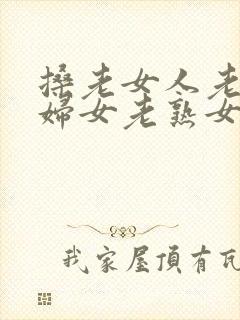 搡老女人老
婦女老熟女
我家屋頂有瓦